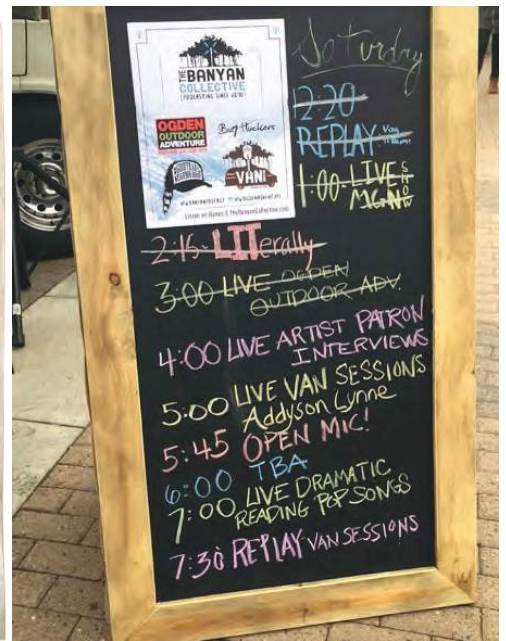 THE
BANYAN
COLLECTIVE
[PODCASTING SINCE 2010]
OGDEN
OUTDOOR
ADVENTURE
VAN!
Saturday
12:20
REPLAY Van
1:00-LIVE SHOW
MGN
2:15-LITerally
3:00 LIVE OGDEN
OUTDOOR ADV.
4:00 LIVE ARTIST PATRON
INTERVIEWS
5:00 LIVE VAN SESSIONS
Addyson Lynne
5:45 OPEN MIC!
6:00 TBA
7:00 LIVE DRAMATIC
READING POP SONGS
7:30 REPLAY VAN SESSIONS